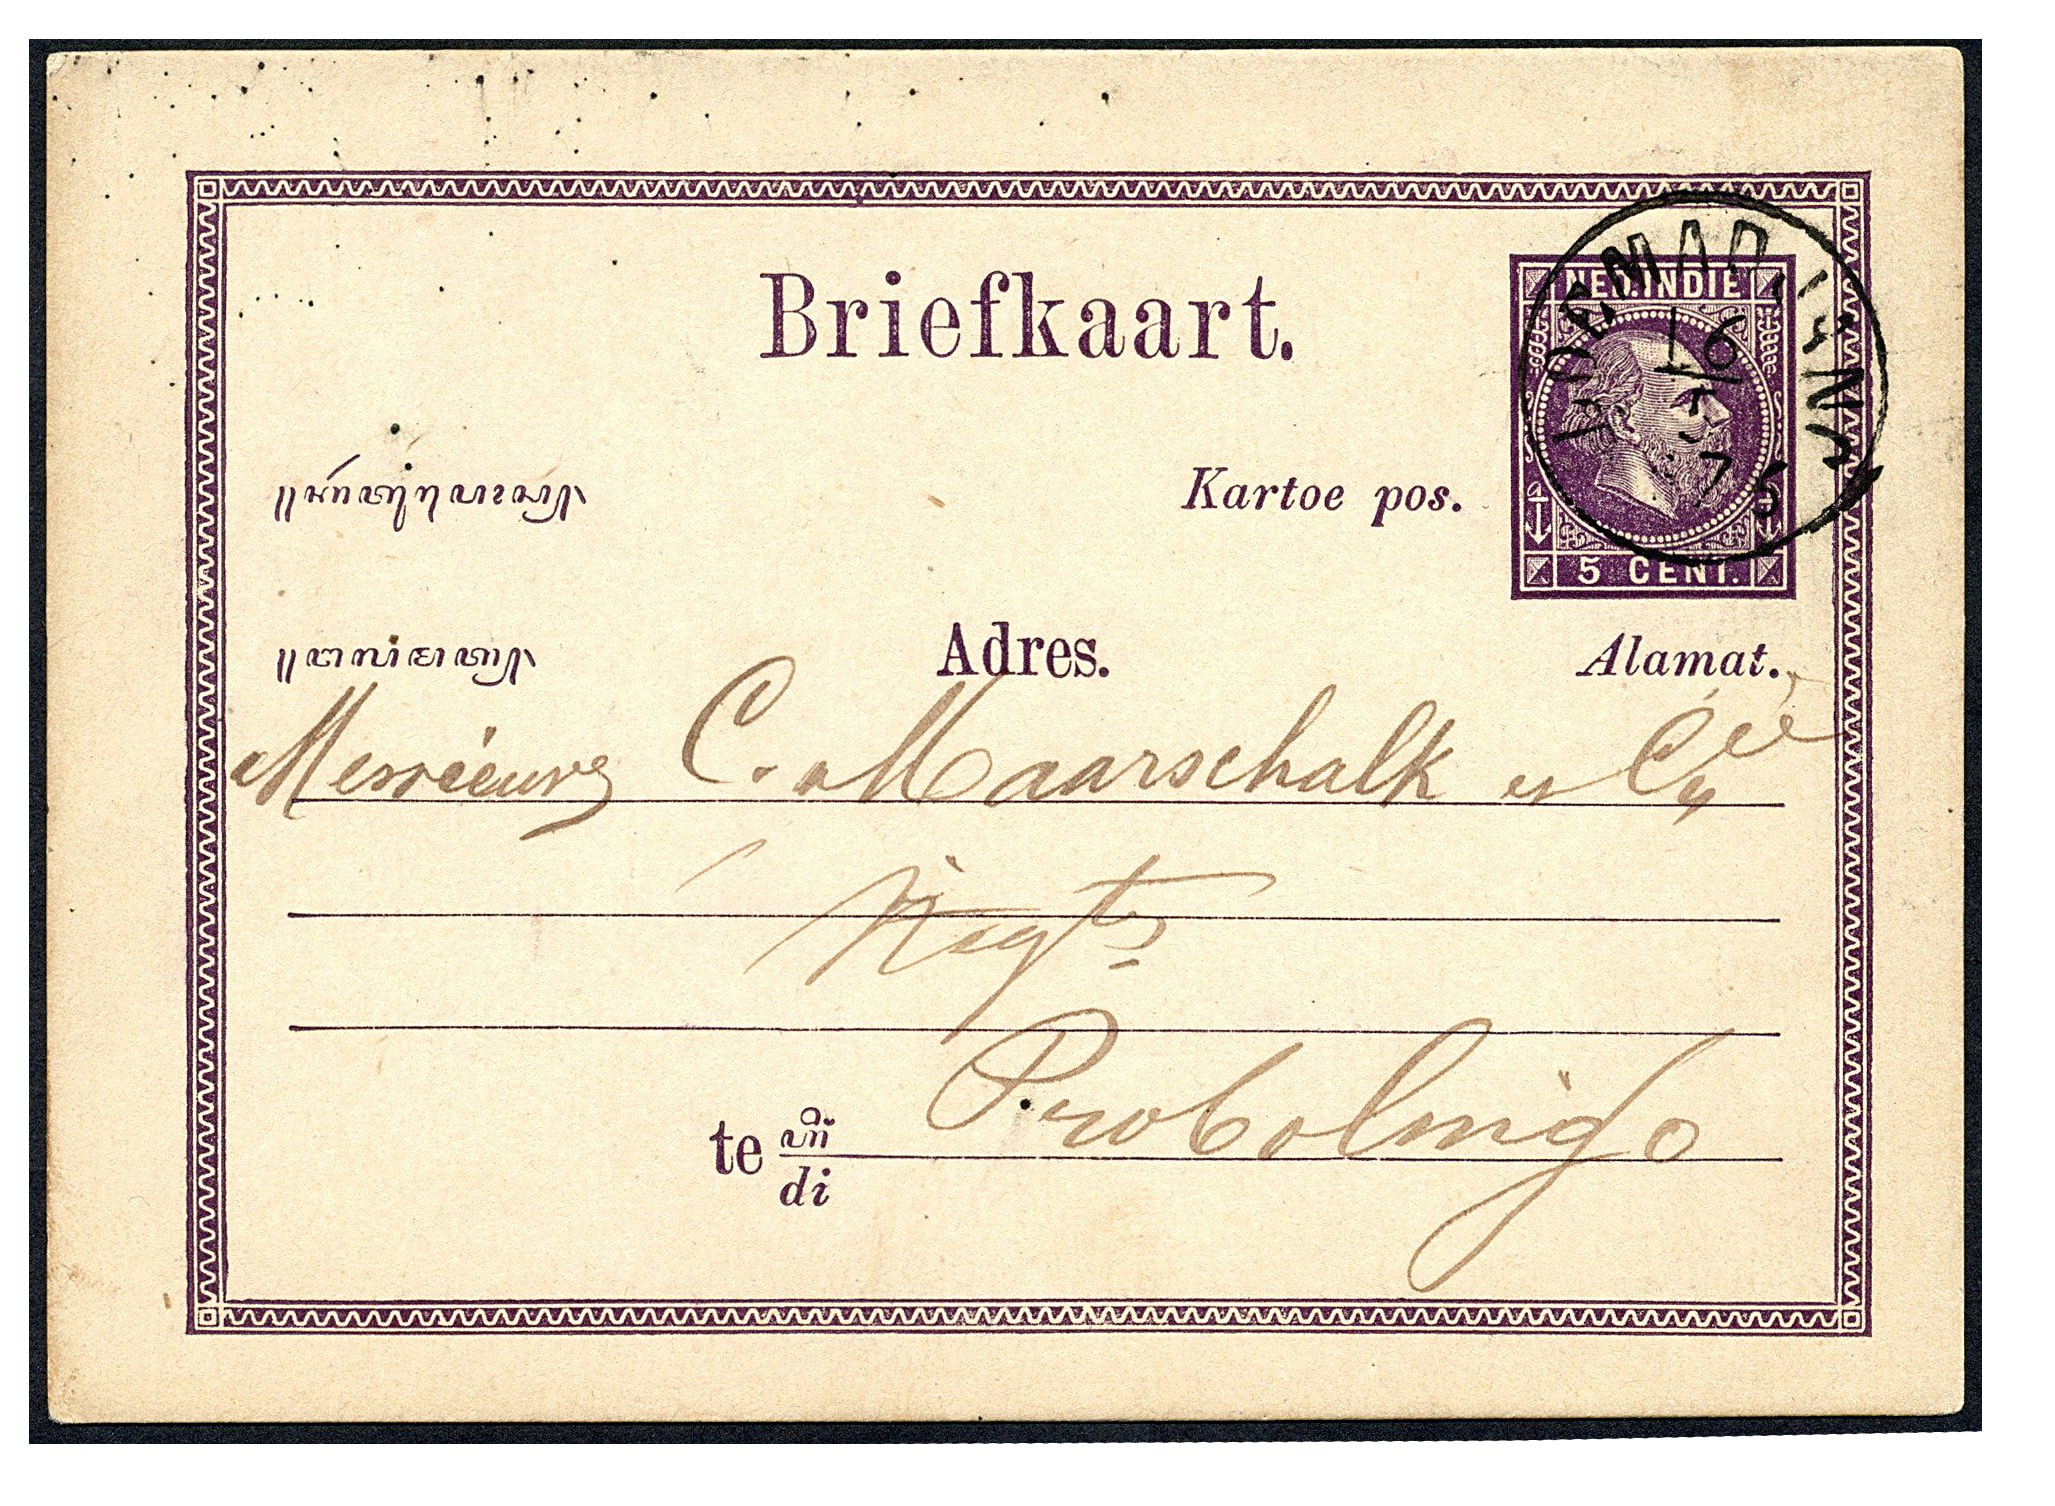 Briefkaart.
NED. INDIE
LOEMADJANG
16
5
Kartoe pos.
5 CENT.
Adres.
Alamat.
Messieurs C. Maarschalk et Cie
Negts
te di Probolingo